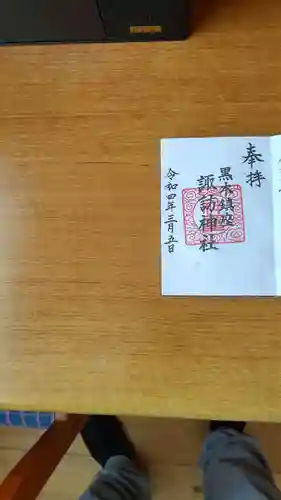 奉持
黒木鎮座
諏訪神社
令和四年三月五日